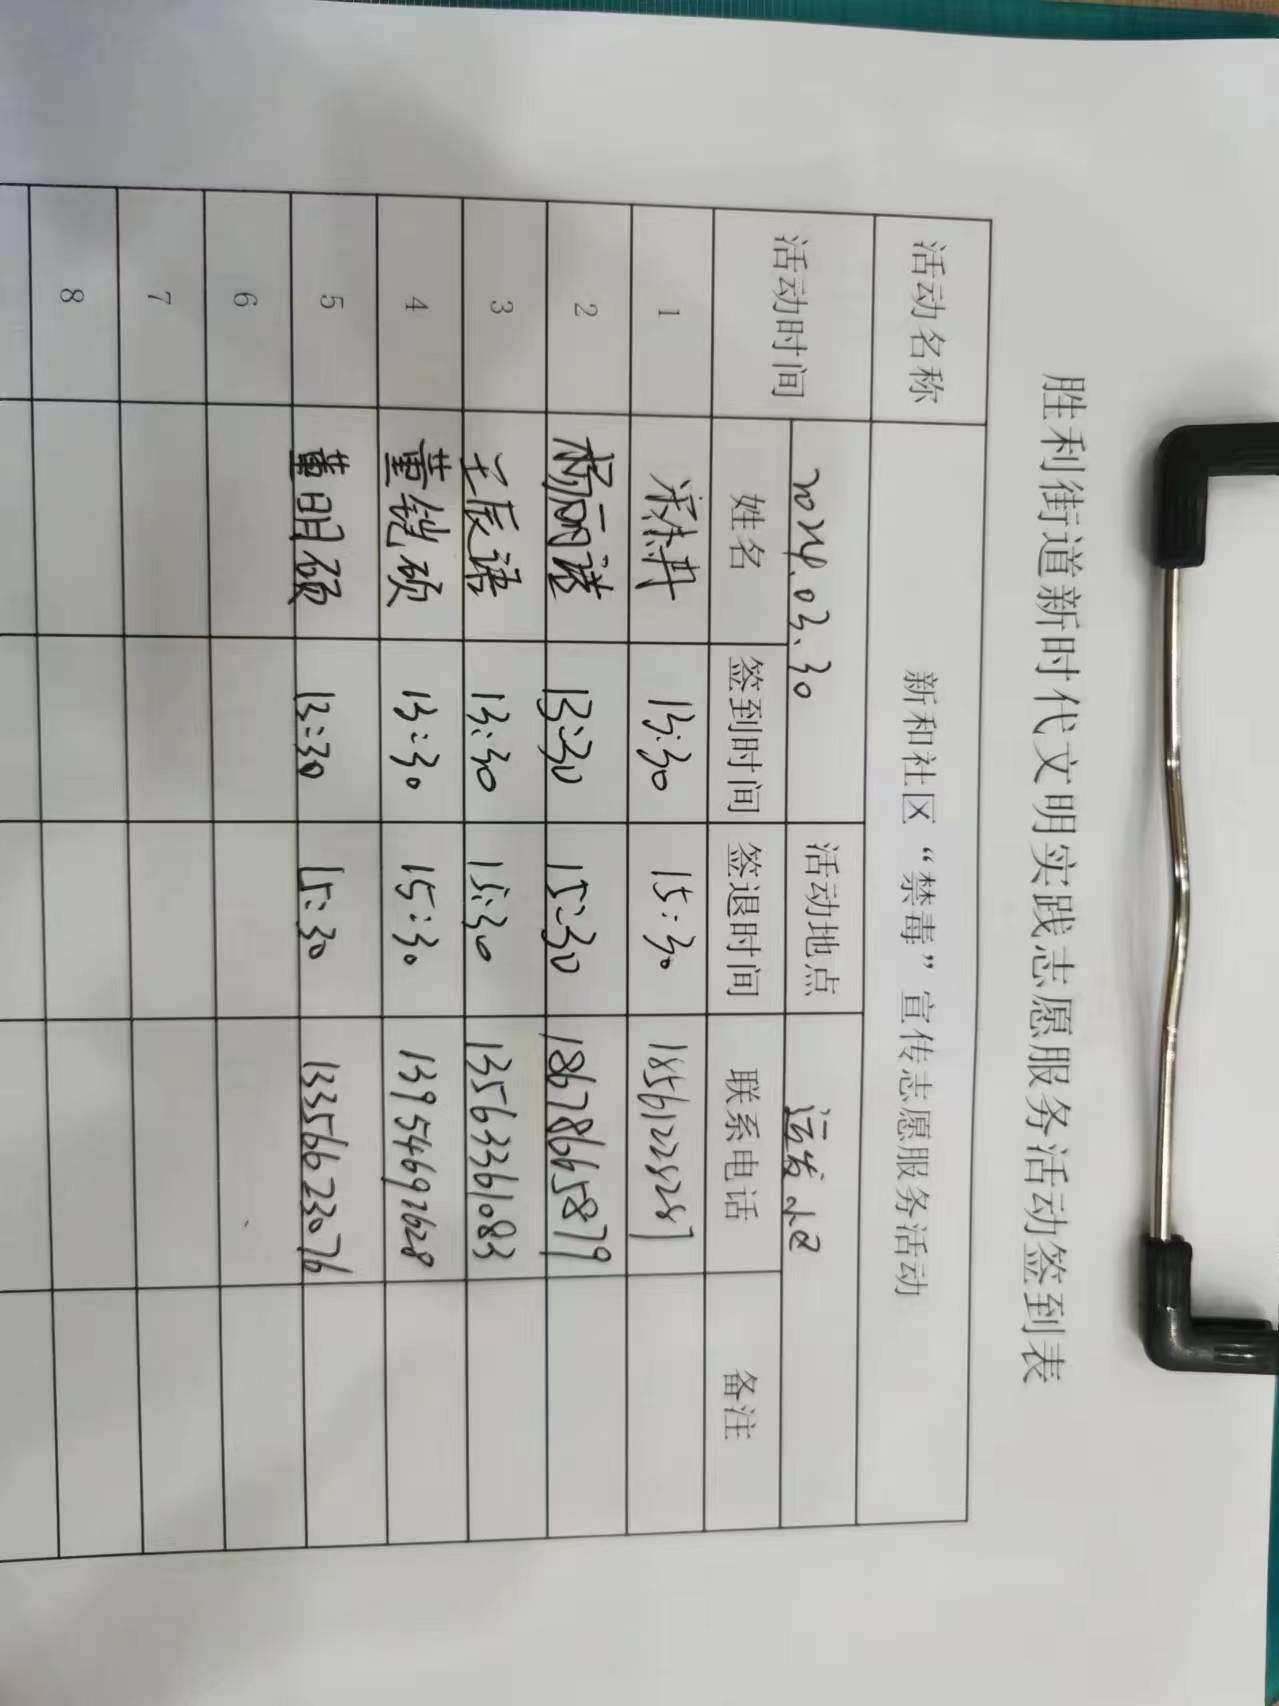 胜利街道新时代文明实践志愿服务活动签到表
活动名称 新和社区“禁毒”宣传志愿服务活动
活动时间 2024.03.30 活动地点 运发小区
姓名 签到时间 签退时间 联系电话 备注
1 13:30 15:30 18561228287
2 杨丽诺 13:30 15:30 18678665879
3 王辰语 13:30 15:30 13563361083
4 董铠硕 13:30 15:30 13954697628
5 黄明硕 13:30 15:30 13356623076
6
7
8